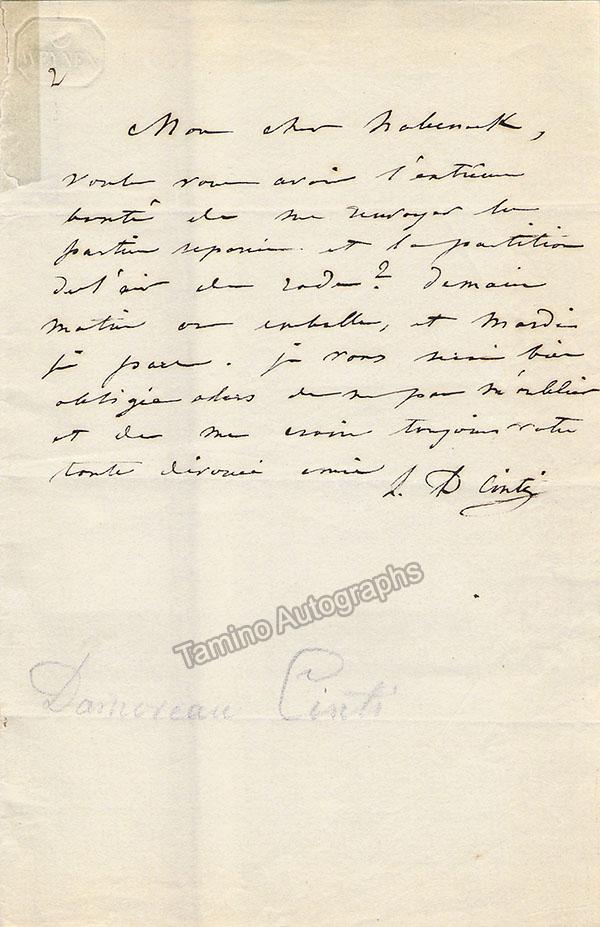 2
Mon cher habeneck,
voulez vous avoir l'extrême
bonté de me renvoyer les
parties séparées. et la partition
de l'air de rode? demain
matin on emballe, et Mardi
je pars. je vous serai bien
obligée alors de ne pas m'oublier
et de me croire toujours votre
toute dévouée amie
L. D Cinti
Tamino Autographs
Damoreau Cinti